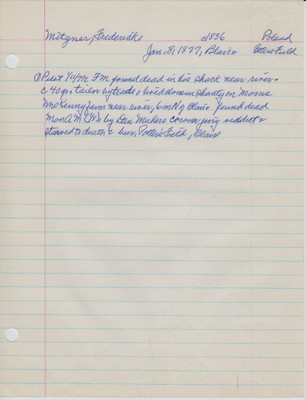 Mitzner, Fredericke c1836 Poland
Jan. 8, 1877, Blair Potters Field
Pilot 1/4/77 F.M. found dead in his shack near river
c 40 yr, tailor by trade & lived alone in shanty on Morris
McKenny farm near river, 6 m N of Blair found dead
Mon A.M. by Dan Maher coroner jury verdict
starved to death & bur, Potter's Field, Blair